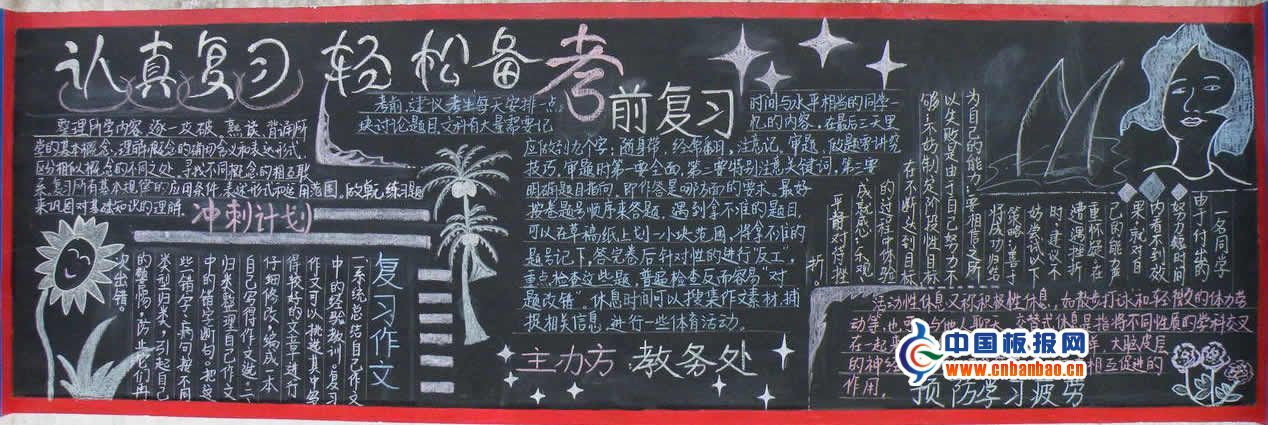 认真复习 轻松备考
整理所学内容,逐一攻破。熟读、背诵所
学的基本概念,理解概念的确切含义和表达形式,
区分相似概念的不同之处,寻求不同概念的相互联
系。复习所有基本规律的应用条件、表述形式和运用范围。做单元练习题
来巩固对基础知识的理解。
冲刺计划
复习作文
一系统总结自己作文
中的经验教训。复习
作文可以挑选其中写
得较好的文章进行
仔细修改,编成一本
自己写得作文选;二
归类整理自己作文
中的错字断句,把这
些错字、病句按不同
类型归类,引起自己
的警惕,防止它们再
次出错。
前复习
考前,建议考生每天安排一点
时间与水平相当的同学一
块讨论题目,文科有大量需要记
忆的内容,在最后三天里
应做到九个字:随身带,经常翻,注意记。审题,做题要讲究
技巧,审题时第一要全面,第二要特别注意关键词,第三要
明确题目指向,即作答是哪方面的要求。最好
按卷题号顺序来答题,遇到拿不准的题目,
可以在草稿纸上划一小块范围,将拿不准的
题号记下,答完卷后针对性的进行“返工”,
重点检查这些题,普遍检查反而容易“对
题改错”。休息时间可以搜集作文素材,捕
捉相关信息,进行一些体育活动。
主办方:教务处
一名同学
由于付出的
努力短时间
内看不到效
果,就对自
己的能力产
重怀疑,在
遭遇挫折
时,建议不
妨尝试以下
策略:善于
将成功归结
为自己的能力;要相信之所
以失败是由于自己努力不
够;不妨制定阶段性目标,
在不断达到目标
的过程中体验
成就感;乐观
平静对待挫
折。
活动性休息又称积极性休息,如散步打球和轻微的体力劳
动等,也
他人聊天。交替式休息是指将不同性质的学科交叉
在一起
大脑皮层
的神经
相互促进的
作用。
预防学习疲劳
中国板报网
www.cnbanbao.cn